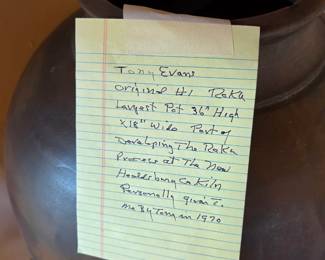 Tony Evans
Original #1 Raku
Largest Pot 36" High
x 18" Wide Part of
Developing The Raku
Process at The New
Healdsburg Ca Kiln
Personally given To
me By Tony in 1970